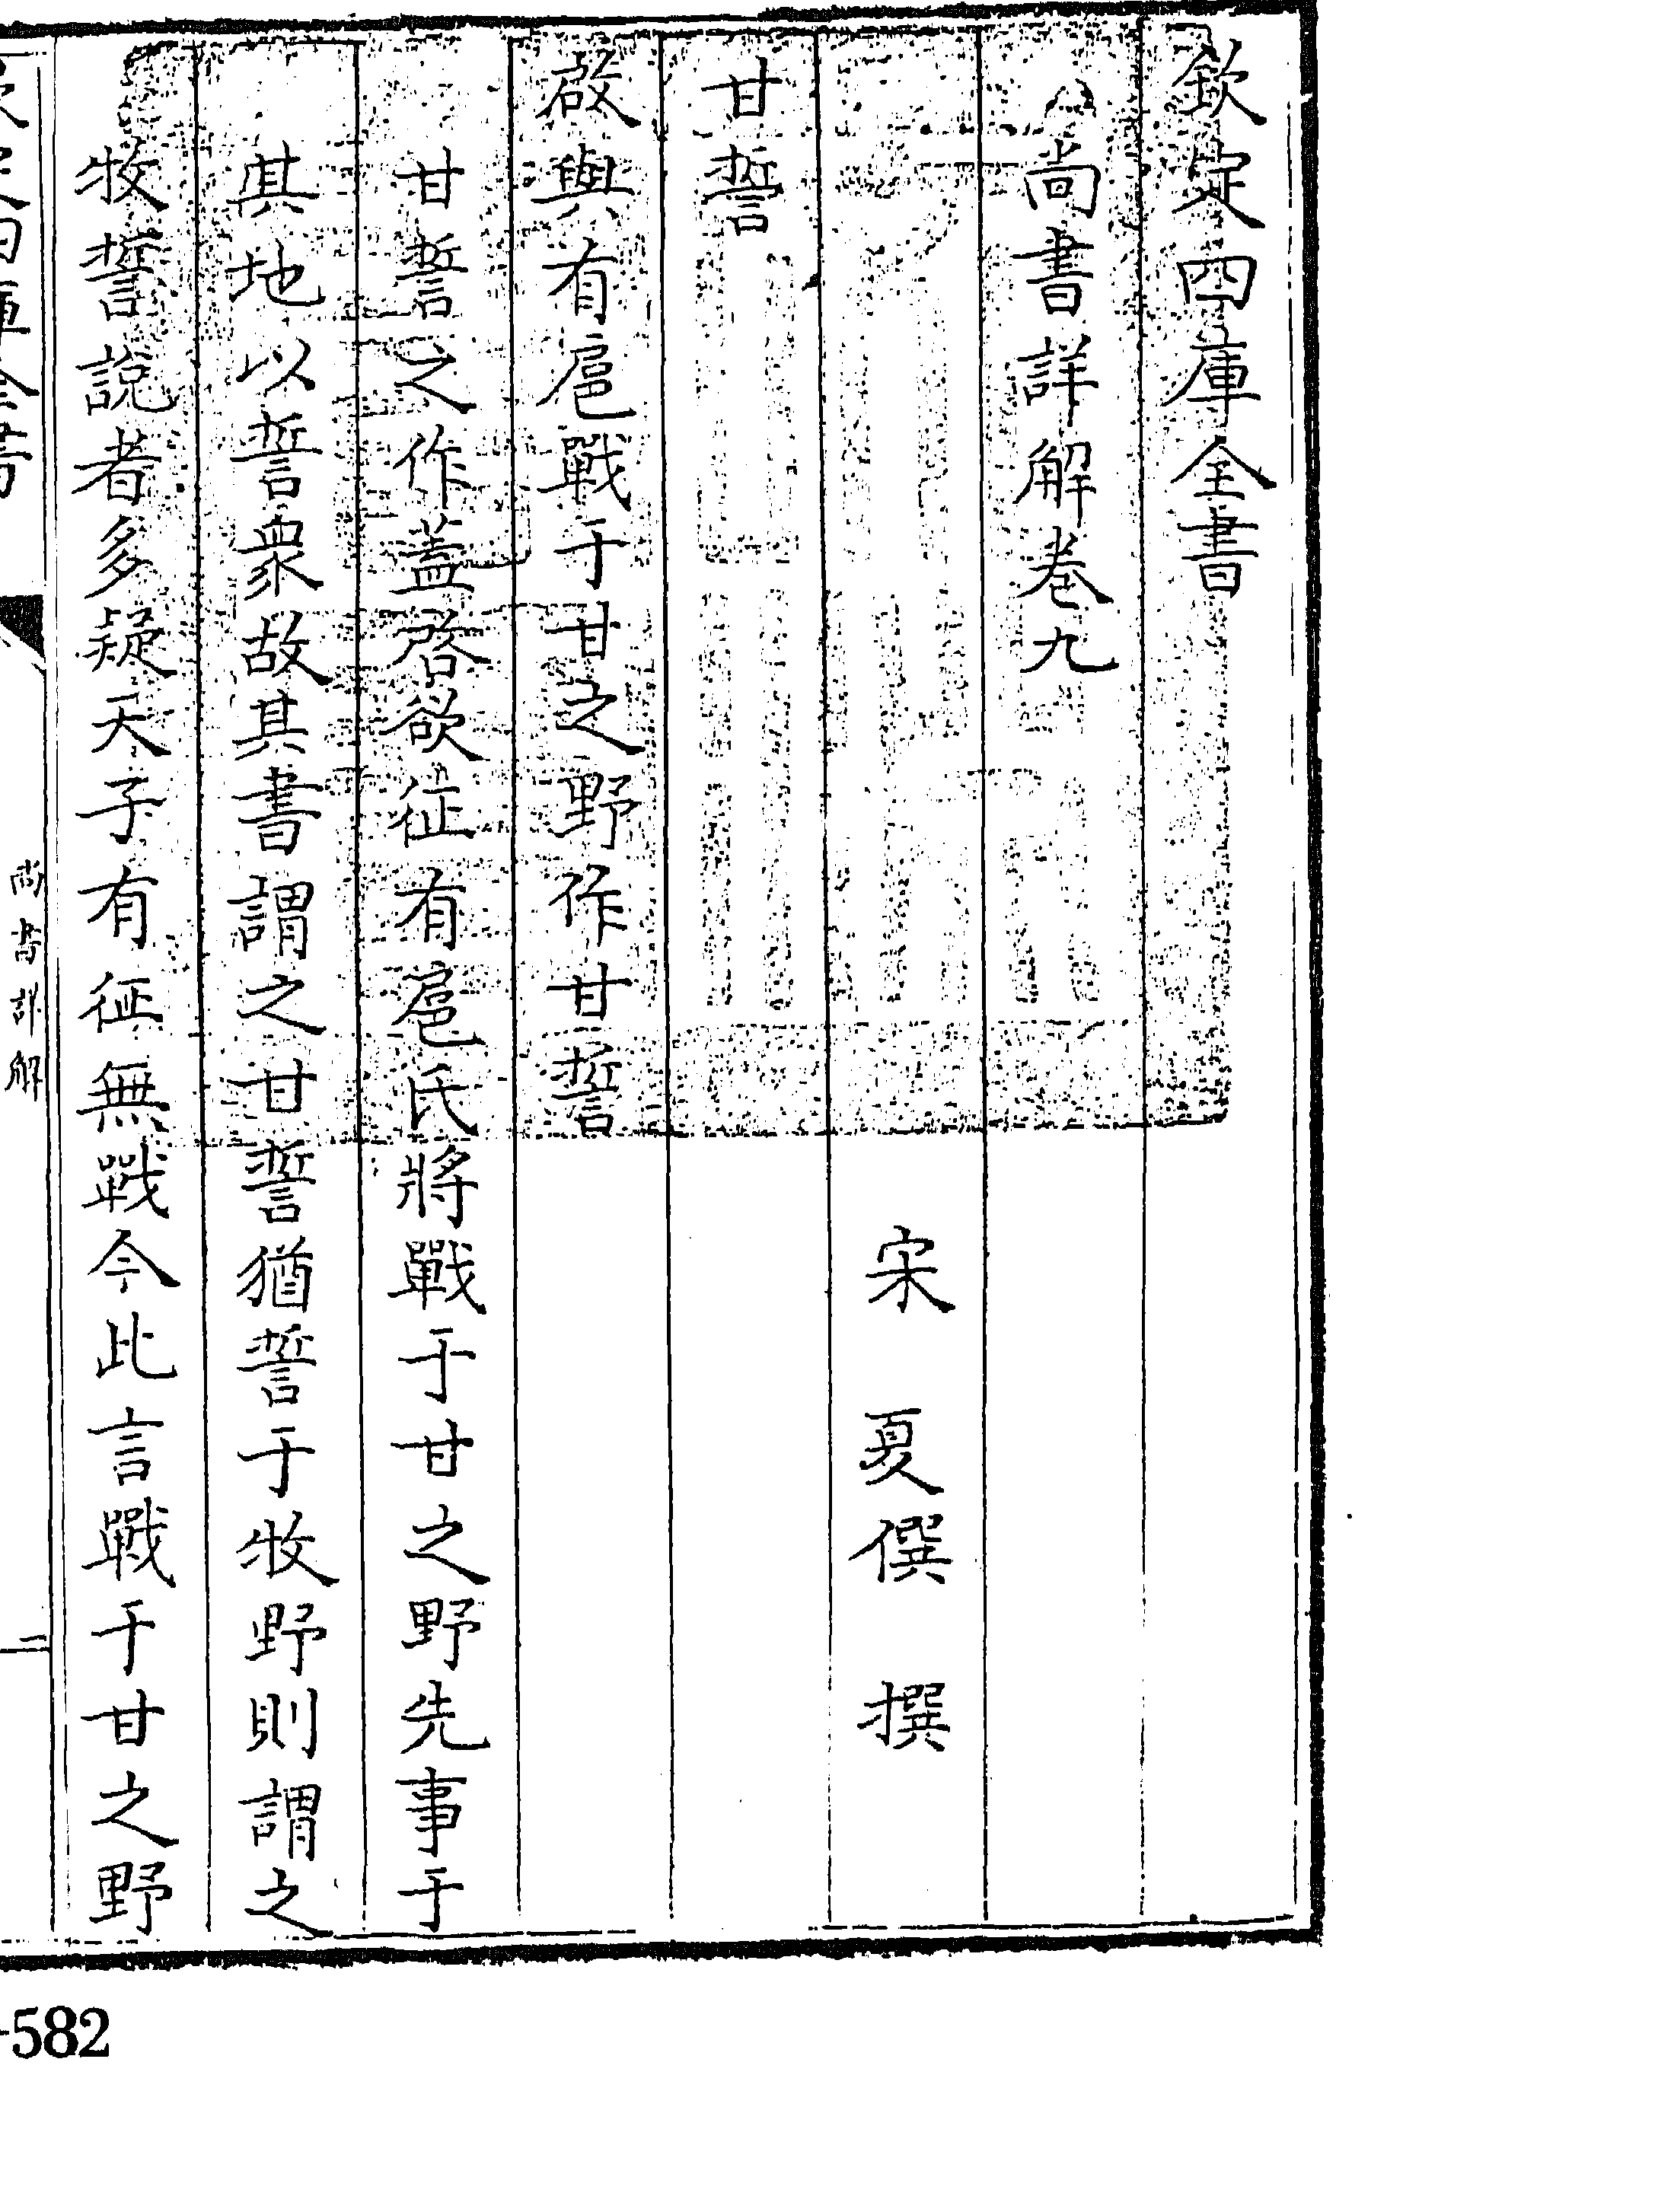 欽定四庫全書
尚書詳解卷九
宋 夏僎 撰
甘誓
啟與有扈戰于甘之野作甘誓
甘誓之作蓋啓欲征有扈氏將戰于甘之野先事于
其地以誓衆故其書謂之甘誓猶誓于牧野則謂之
牧誓說者多疑天子有征無戰今此言戰于甘之野
尚書詳解
一
-582